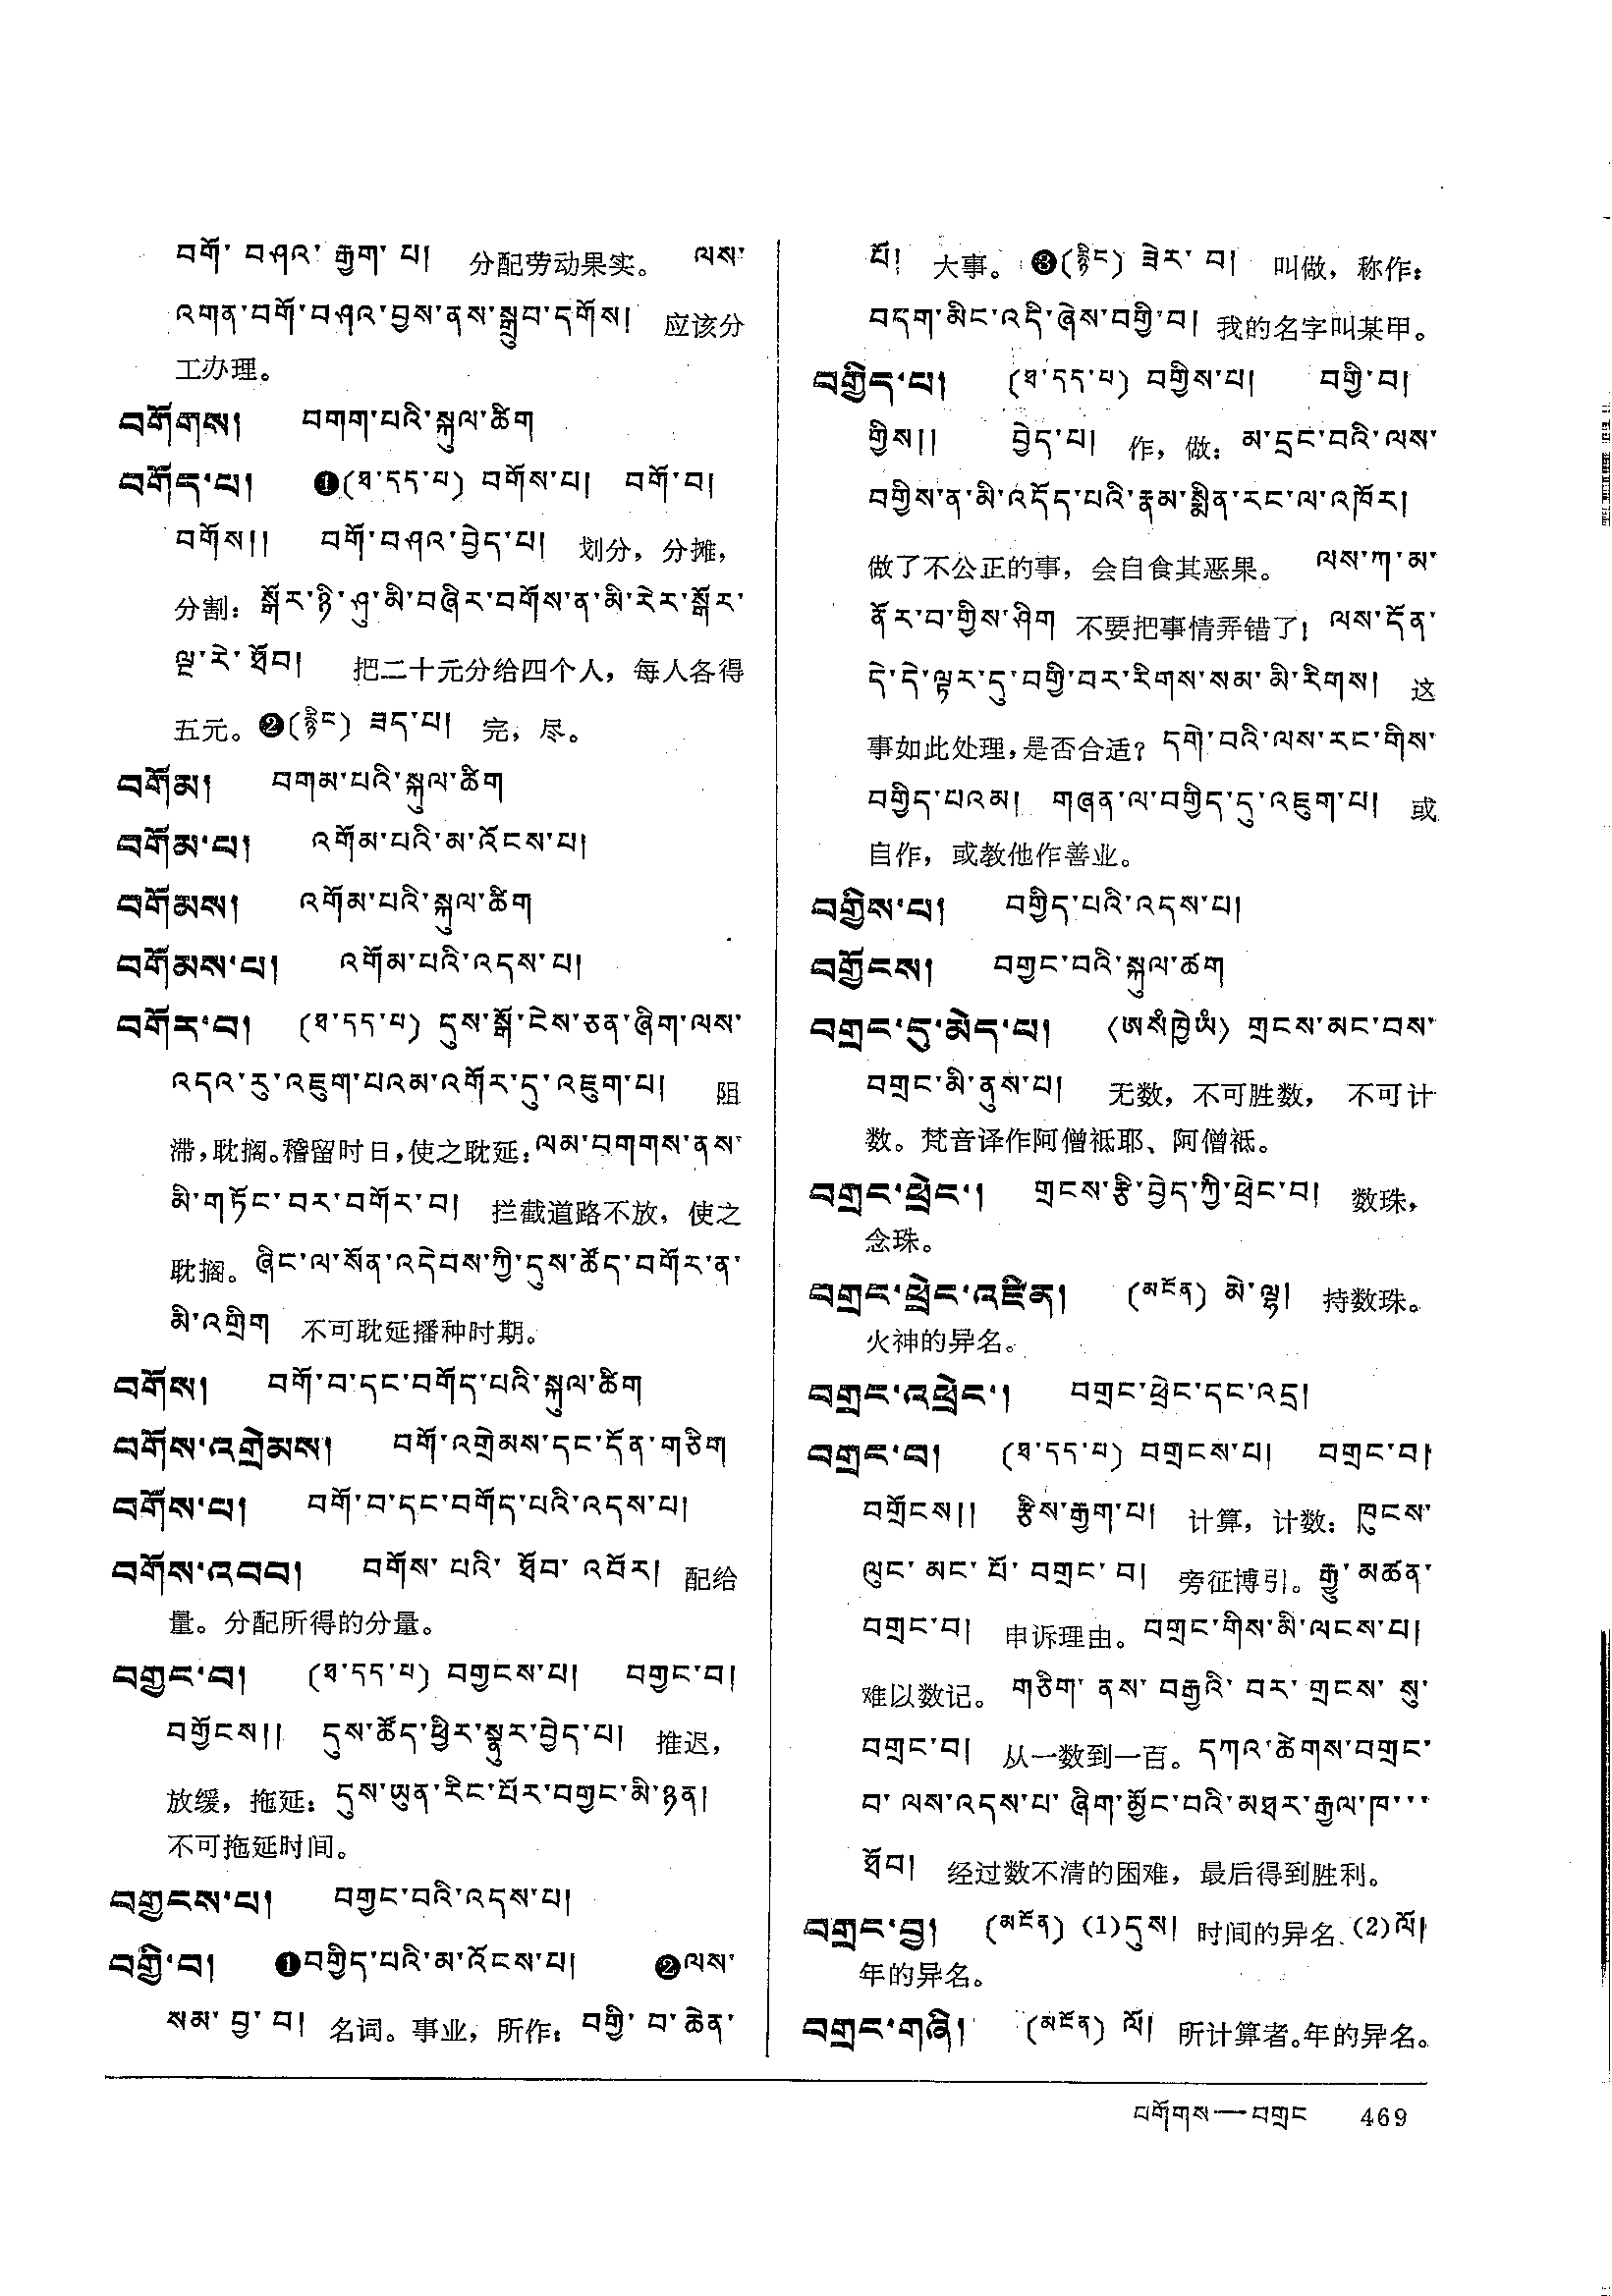 བགོ་ བཤའ་ རྒྱག་ པ། 分配劳动果实。 ལས་
འགན་བགོ་བཤའ་བྱས་ནས་སྒྲུབ་དགོས། 应该分
工办理。
བགོགས། བགག་པའི་སྐུལ་ཚིག
བགོད་པ། ❶(ཐ་དད་པ) བགོས་པ། བགོ་བ།
བགོས།། བགོ་བཤའ་བྱེད་པ། 划分，分摊，
分割：སྒོར་ཉི་ཤུ་མི་བཞིར་བགོས་ན་མི་རེར་སྒོར་
ལྔ་རེ་ཐོབ། 把二十元分给四个人，每人各得
五元。❷(རྙིང) ཟད་པ། 完，尽。
བགོམ། བགམ་པའི་སྐུལ་ཚིག
བགོམ་པ། འགོམ་པའི་མ་འོངས་པ།
བགོམས། འགོམ་པའི་སྐུལ་ཚིག
བགོམས་པ། འགོམ་པའི་འདས་པ།
བགོར་བ། (ཐ་དད་པ) དུས་སྒོ་ངེས་ཅན་ཞིག་ལས་
འདའ་རུ་འཇུག་པའམ་འགོར་དུ་འཇུག་པ། 阻
滞，耽搁。稽留时日，使之耽延：ལམ་བགགས་ནས་
མི་གཏོང་བར་བགོར་བ། 拦截道路不放，使之
耽搁。ཞིང་ལ་སོན་འདེབས་ཀྱི་དུས་ཚོད་བགོར་ན་
མི་འགྲིག 不可耽延播种时期。
བགོས། བགོ་བ་དང་བགོད་པའི་སྐུལ་ཚིག
བགོས་འགྲེམས། བགོ་འགྲེམས་དང་དོན་གཅིག
བགོས་པ། བགོ་བ་དང་བགོད་པའི་འདས་པ།
བགོས་འབབ། བགོས་ པའི་ ཐོབ་ འབོར། 配给
量。分配所得的分量。
བགྱང་བ། (ཐ་དད་པ) བགྱངས་པ། བགྱང་བ།
བགྱོངས།། དུས་ཚོད་ཕྱིར་སྣུར་བྱེད་པ། 推迟，
放缓，拖延：དུས་ཡུན་རིང་པོར་བགྱང་མི་ཉན།
不可拖延时间。
བགྱངས་པ། བགྱང་བའི་འདས་པ།
བགྱི་བ། ❶བགྱིད་པའི་མ་འོངས་པ། ❷ལས་
སམ་ བྱ་ བ། 名词。事业，所作：བགྱི་ བ་ ཆེན་
པོ། 大事。❸(རྙིང) ཟེར་ བ། 叫做，称作：
བདག་མིང་འདི་ཞེས་བགྱི་བ། 我的名字叫某甲。
བགྱིད་པ། (ཐ་དད་པ) བགྱིས་པ། བགྱི་བ།
གྱིས།། བྱེད་པ། 作，做：མ་དྲང་བའི་ལས་
བགྱིས་ན་མི་འདོད་པའི་རྣམ་སྨིན་རང་ལ་འཁོར།
做了不公正的事，会自食其恶果。 ལས་ཀ་མ་
ནོར་བ་གྱིས་ཤིག 不要把事情弄错了！ལས་དོན་
དེ་དེ་ལྟར་དུ་བགྱི་བར་རིགས་སམ་མི་རིགས། 这
事如此处理，是否合适？དགེ་བའི་ལས་རང་གིས་
བགྱིད་པའམ། གཞན་ལ་བགྱིད་དུ་འཇུག་པ། 或
自作，或教他作善业。
བགྱིས་པ། བགྱིད་པའི་འདས་པ།
བགྱོངས། བགྱང་བའི་སྐུལ་ཚག
བགྲང་དུ་མེད་པ། 〈ཨསཾཁྱེཡཾ〉 གྲངས་མང་བས་
བགྲང་མི་ནུས་པ། 无数，不可胜数， 不可计
数。梵音译作阿僧祗耶、阿僧祗。
བགྲང་ཕྲེང་། གྲངས་རྩི་བྱེད་ཀྱི་ཕྲེང་བ། 数珠，
念珠。
བགྲང་ཕྲེང་འཛིན། (མངོན) མེ་ལྷ། 持数珠。
火神的异名。
བགྲང་འཕྲེང་། བགྲང་ཕྲེང་དང་འདྲ།
བགྲང་བ། (ཐ་དད་པ) བགྲངས་པ། བགྲང་བ།
བགྲོངས།། རྩིས་རྒྱག་པ། 计算，计数：ཁུངས་
ལུང་ མང་ པོ་ བགྲང་ བ། 旁征博引。རྒྱུ་མཚན་
བགྲང་བ། 申诉理由。བགྲང་གིས་མི་ལངས་པ།
难以数记。 གཅིག་ ནས་ བརྒྱའི་ བར་ གྲངས་ སུ་
བགྲང་བ། 从一数到一百。དཀའ་ཚེགས་བགྲང་
བ་ ལས་འདས་པ་ ཞིག་མྱོང་བའི་མཐར་རྒྱལ་ཁ་་་
ཐོབ། 经过数不清的困难，最后得到胜利。
བགྲང་བྱ། (མངོན) (1)དུས། 时间的异名 (2)ལོ།
年的异名。
བགྲང་གཞི། (མངོན) ལོ། 所计算者。年的异名。
བགོགས—བགྲང 469